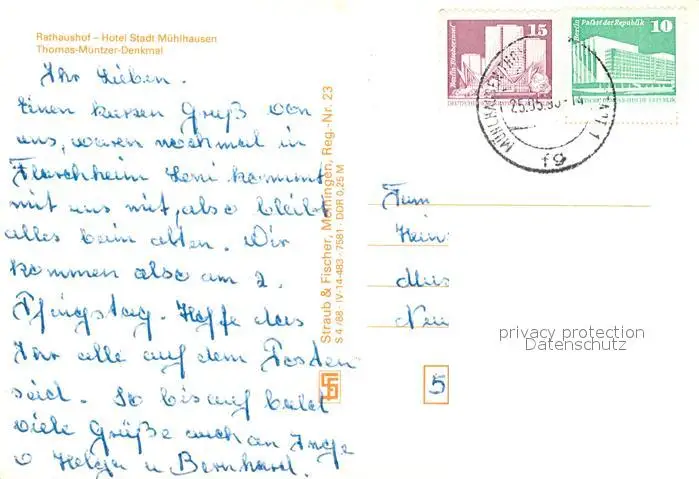 Rathaushof – Hotel Stadt Mühlhausen
Thomas-Müntzer-Denkmal
Ihr Lieben.
Einen kurzen Gruß von
uns, waren nochmal in
Flarchheim Leni kommt
mit uns mit, also bleibt
alles beim alten. Wir
kommen also am 2.
Pfingstag. Hoffe das
Ihr alle auf dem Posten
seid. So bis auf bald
viele Grüße auch an Inge
Helga u Bernhard.
Straub & Fischer, Meiningen, Reg.-Nr. 23
S 4/88 · IV-14-483 · 7581 · DDR 0,25 M
Berlin, Fischerinsel
15
DEUTSCHE DEMOKRATISCHE REPUBLIK
Berlin, Palast der Republik
10
DEUTSCHE DEMOKRATISCHE REPUBLIK
MÜHLHAUSEN
1
25.05.90-14
fg
Fam
Hein
Neu
5
privacy protection
Datenschutz